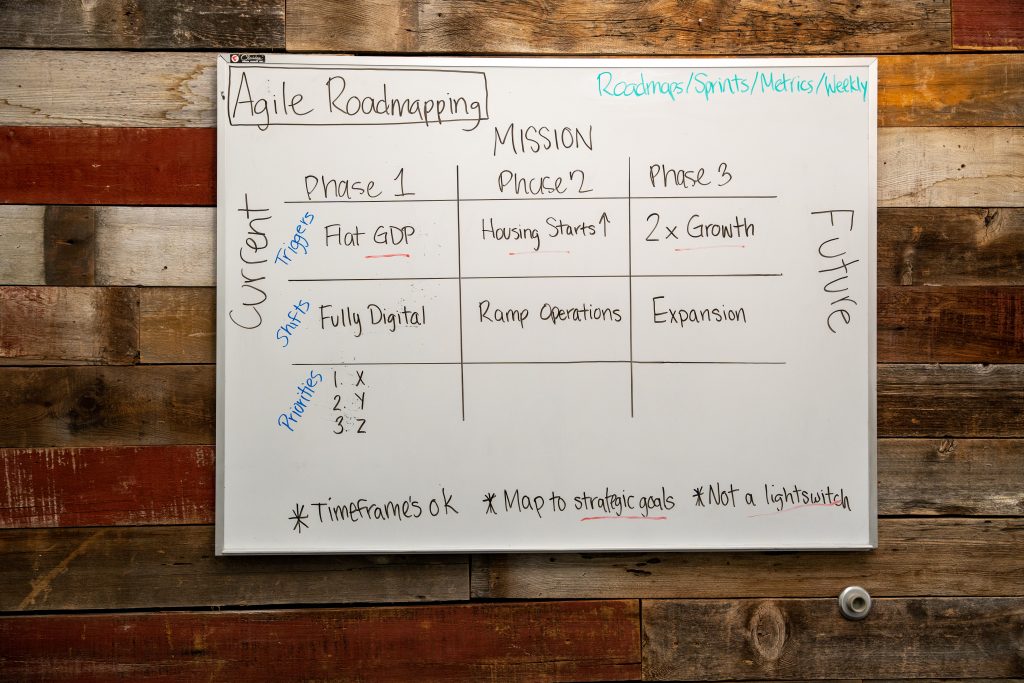 Agile Roadmapping
Roadmaps/Sprints/Metrics/Weekly
MISSION
Phase 1 Phase 2 Phase 3
Current
Future
Triggers Flat GDP Housing Starts↑ 2x Growth
Shifts Fully Digital Ramp Operations Expansion
Priorities 1. X
2. Y
3. Z
*Timeframe's ok *Map to strategic goals *Not a lightswitch